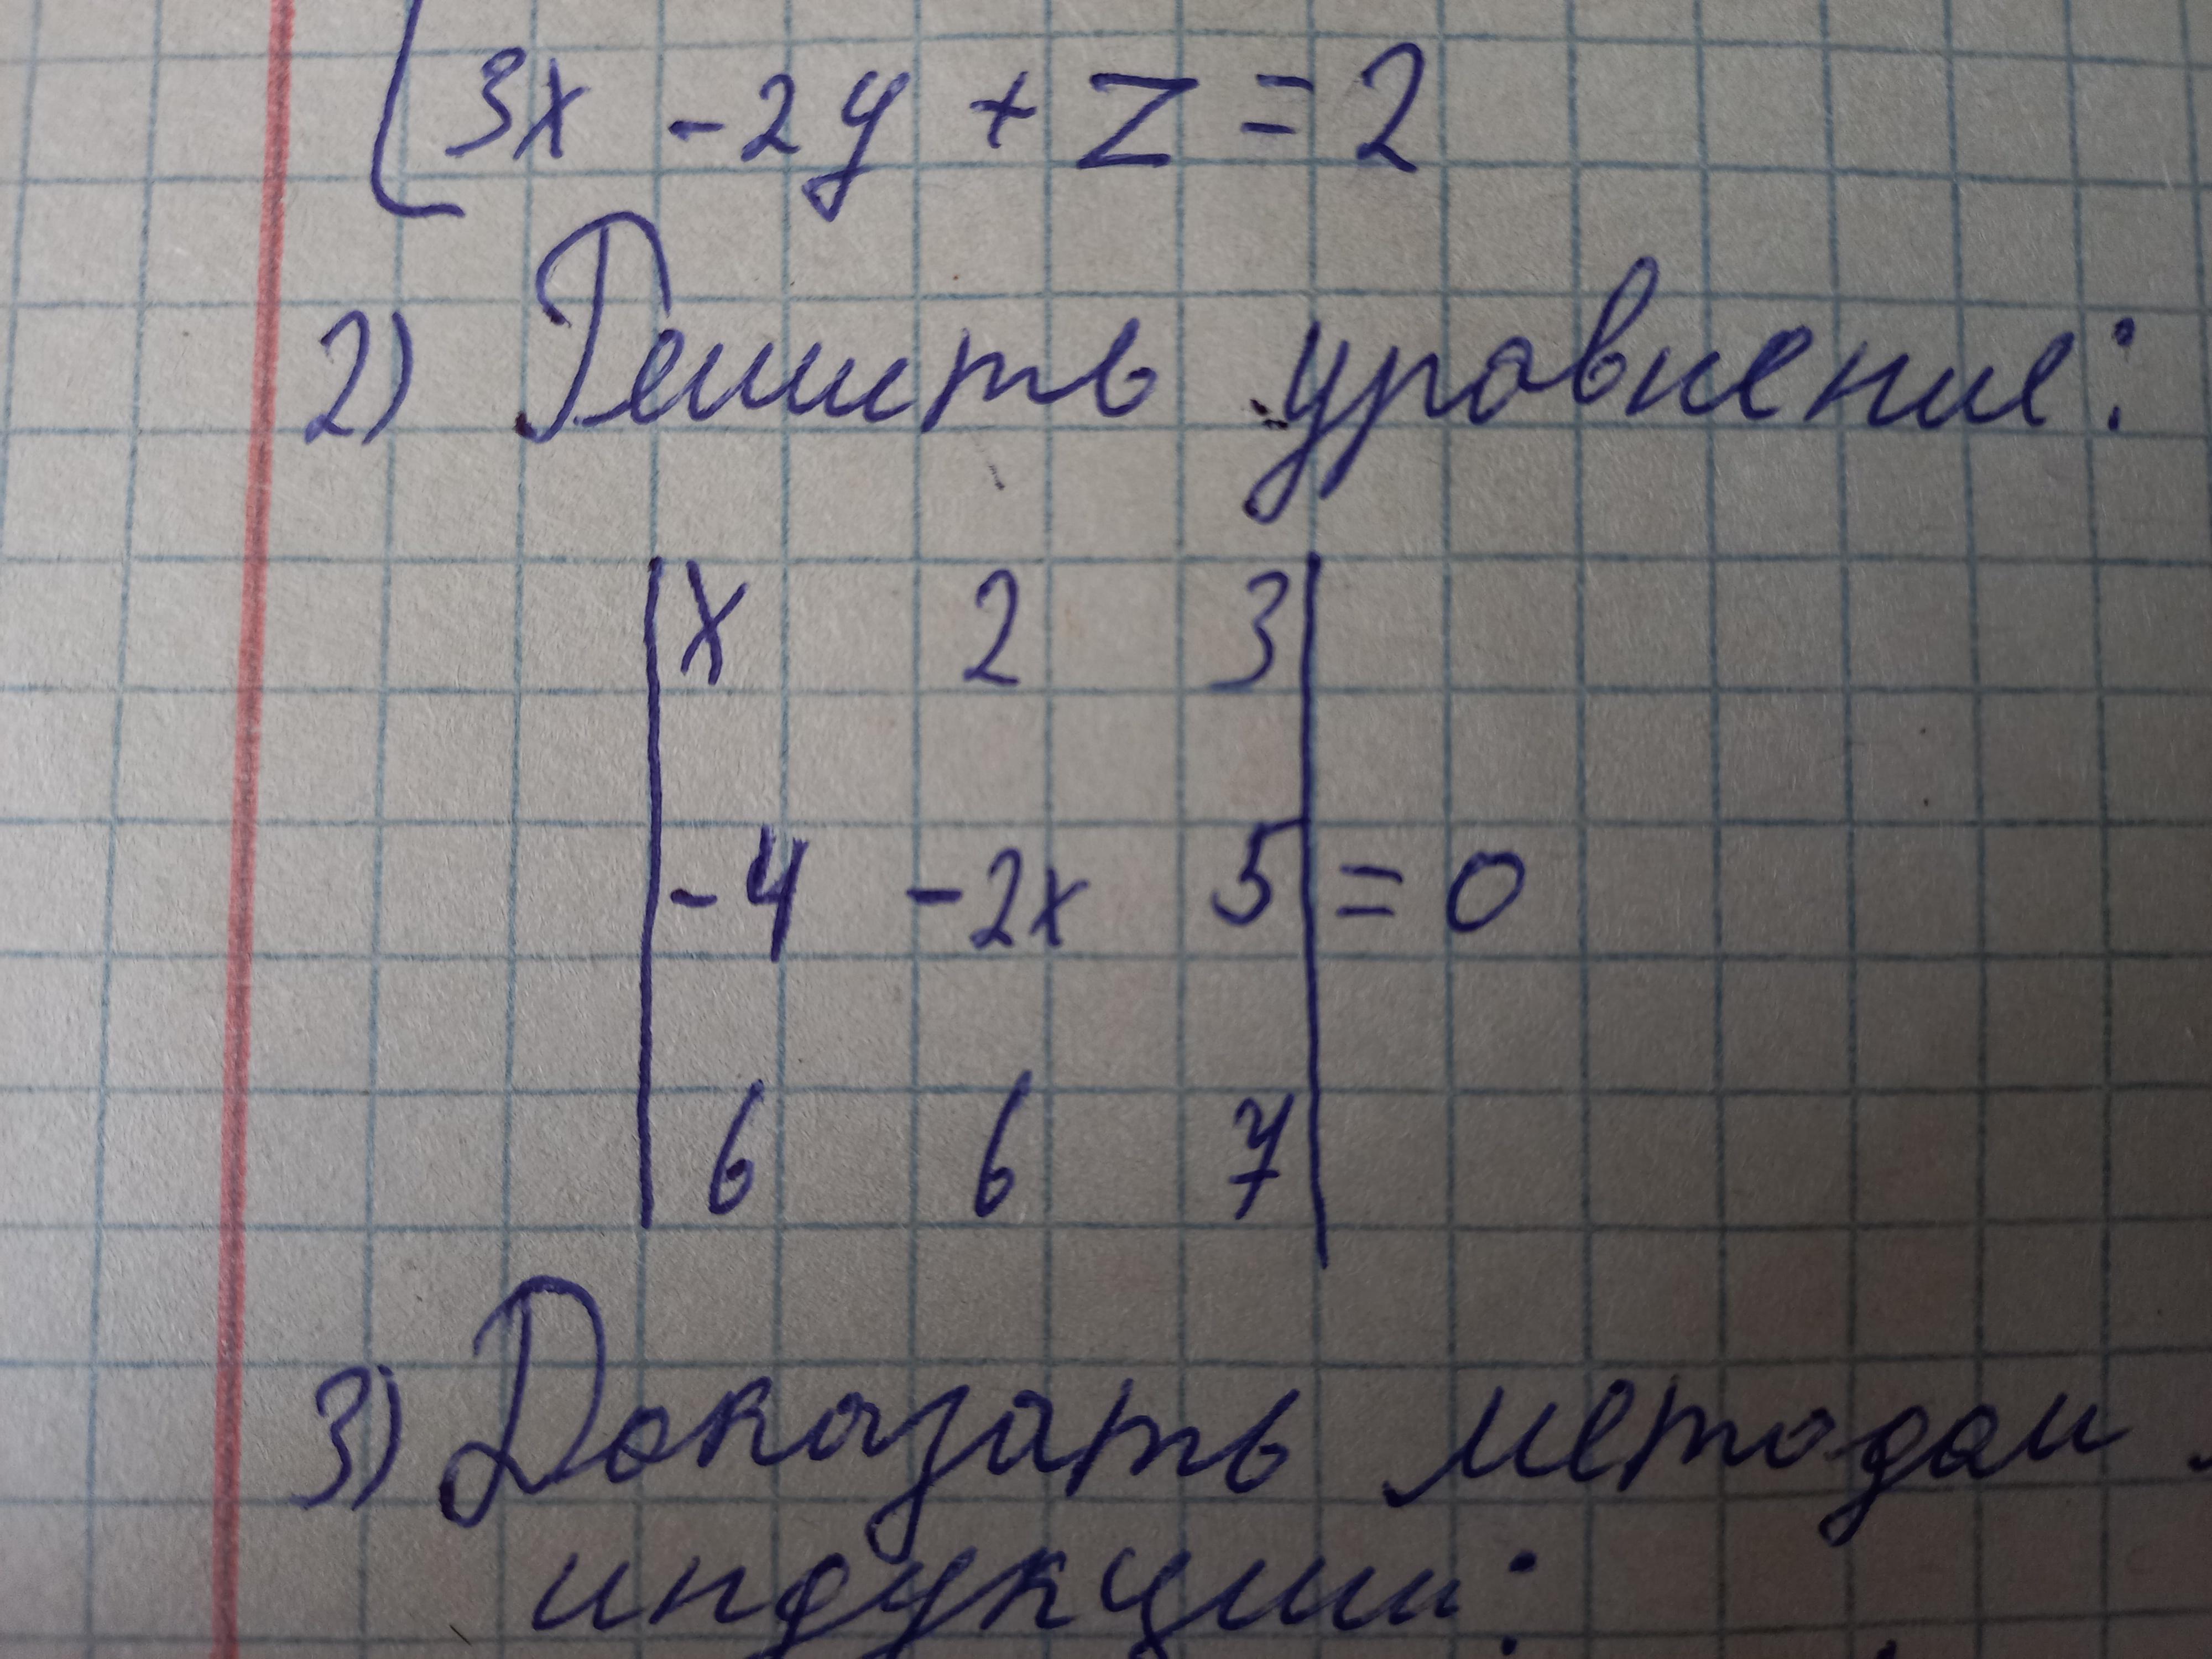 3x - 2y + z = 2
2) Решить уравнение:
x 2 3
-4 -2x 5 = 0
6 6 7
3) Доказать методом
индукции: